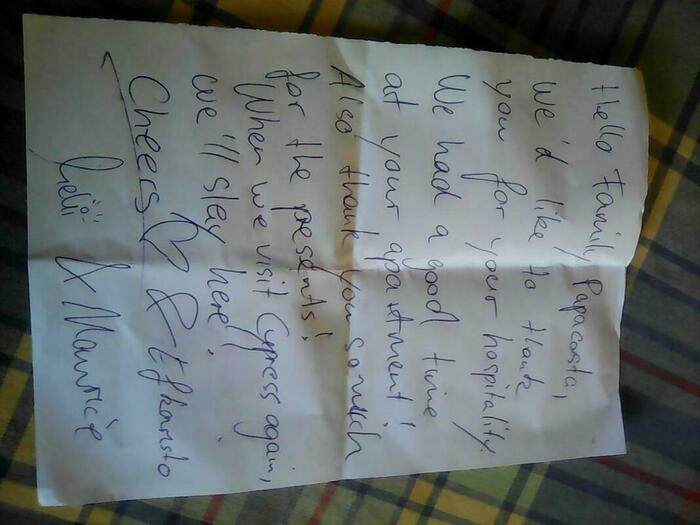 Hello Family Papacosta,
we'd like to thank
you for your hospitality.
We had a good time
at your apartment!
Also thank you so much
for the presents!
When we visit Cypress again,
we'll stay here!
Cheers ♡ & Efkaristo
& Maurice